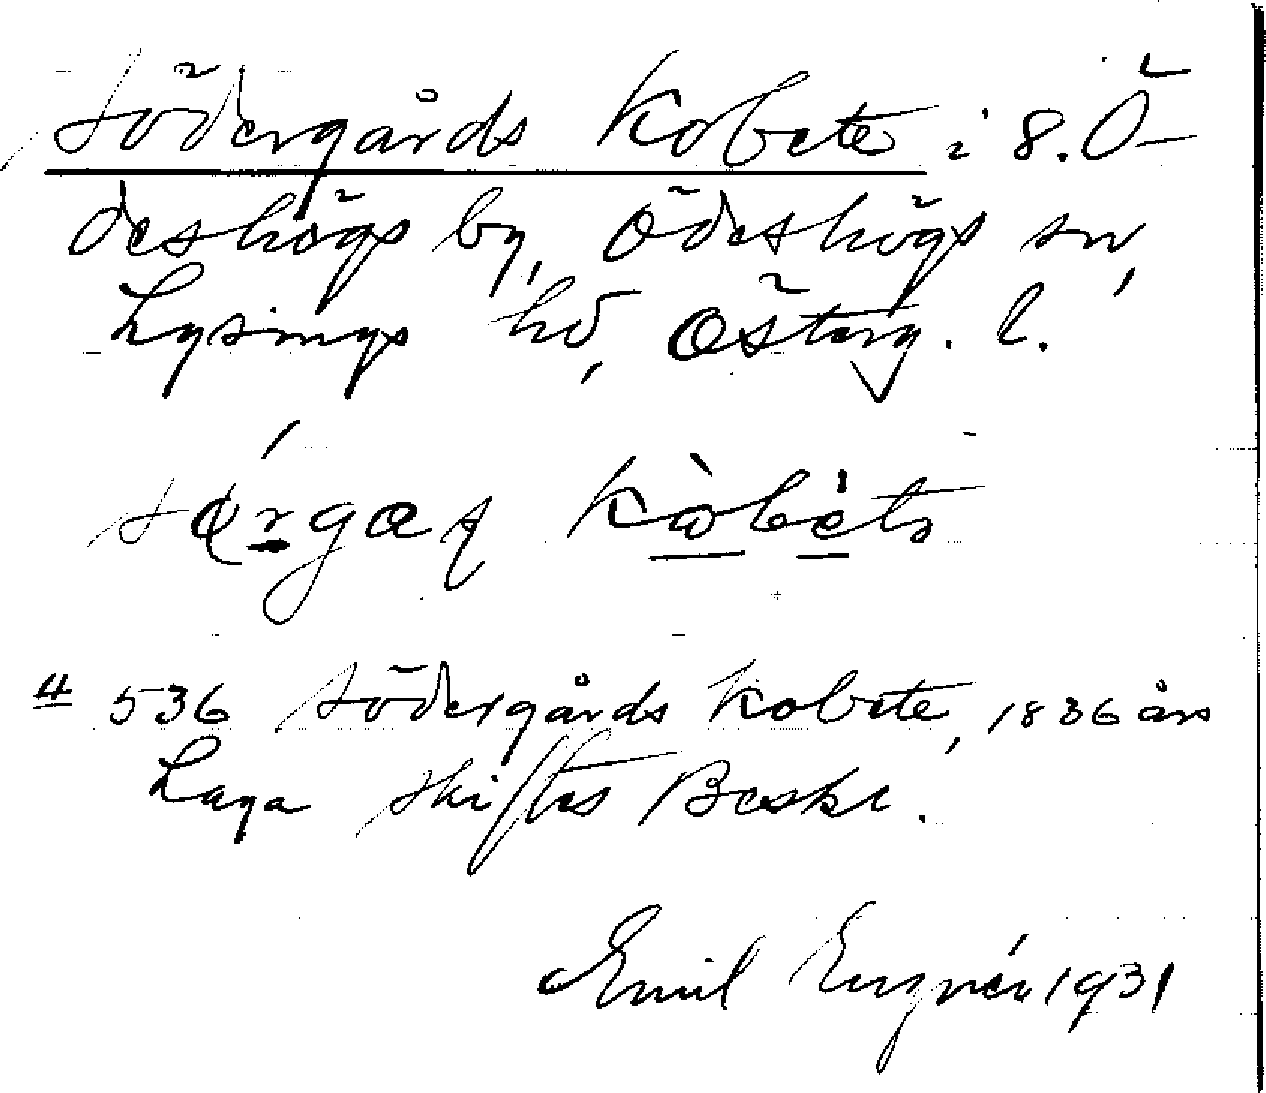 Södergårds Kobete i 8. Ö-
deshögs by, Ödeshögs sn,
Lysings hd, Österg. l.
Kobete
4 536 Södergårds Kobete, 1836 års
Laga skiftes Beskr.
Emil 1931